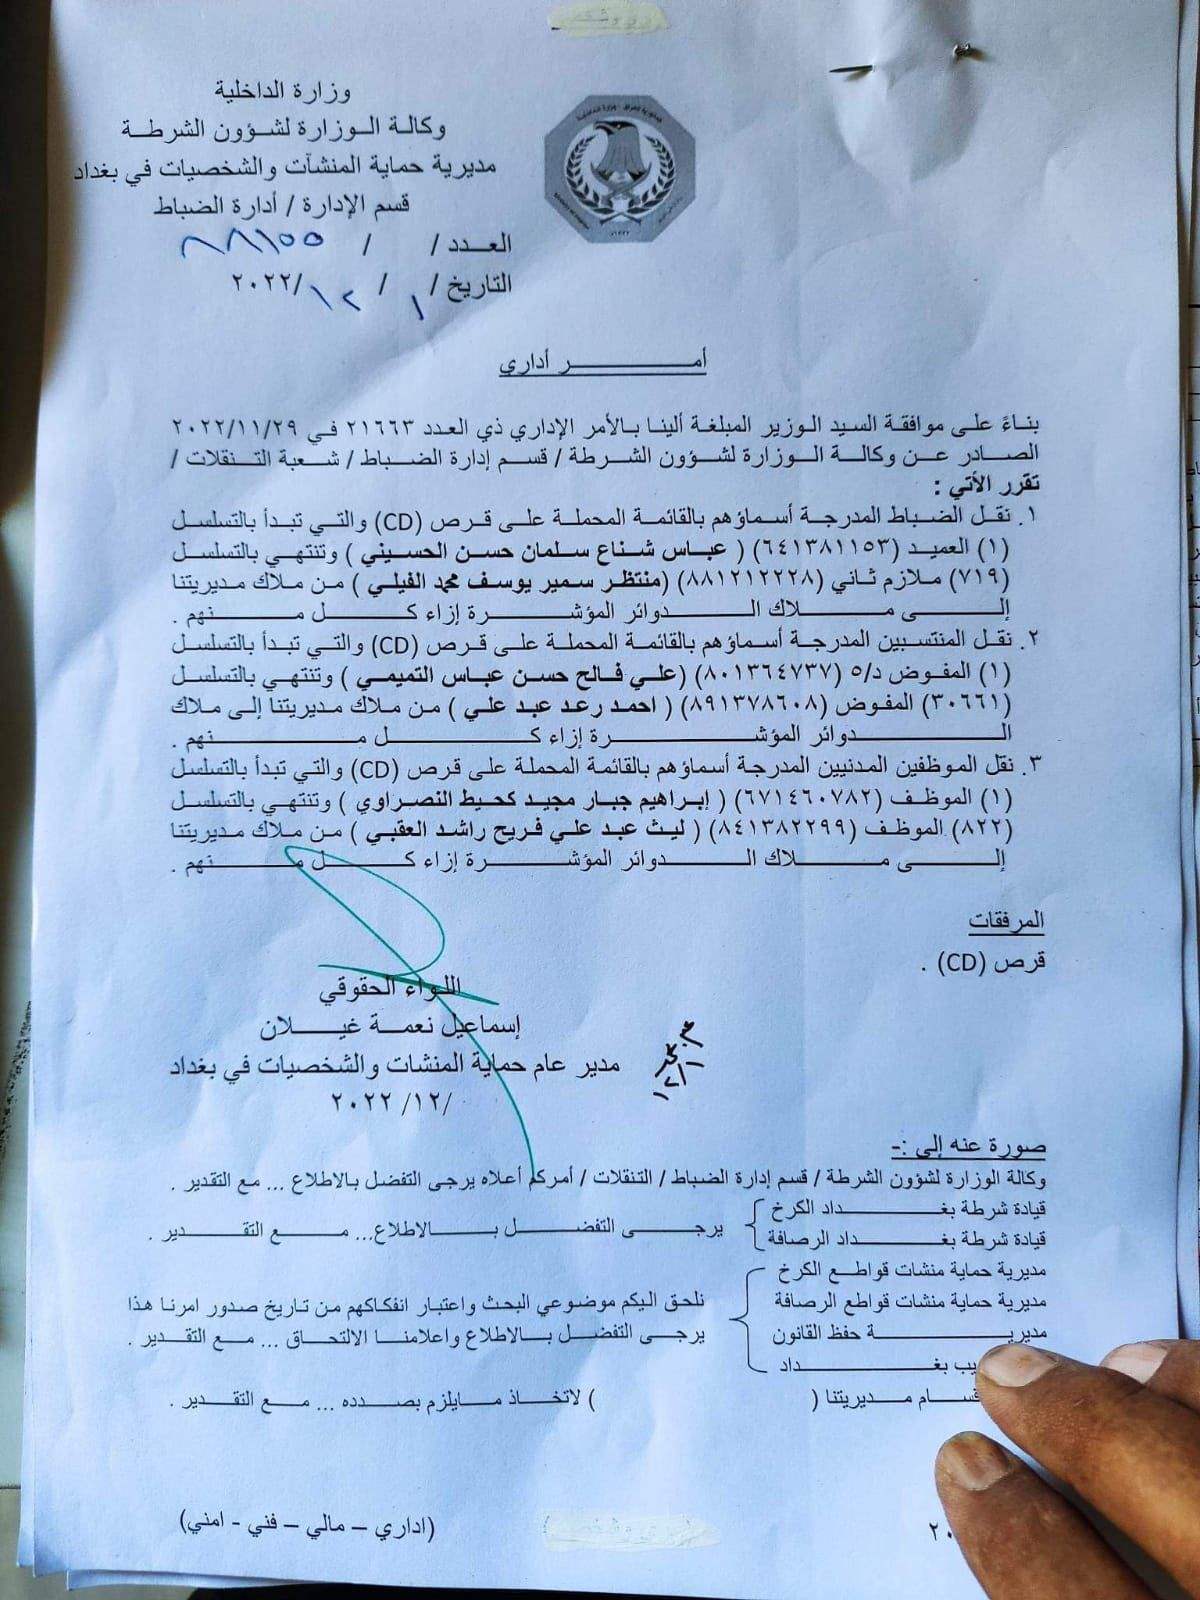 وزارة الداخلية
وكالة الوزارة لشؤون الشرطة
مديرية حماية المنشآت والشخصيات في بغداد
قسم الإدارة / أدارة الضباط
العدد / / ٨٨١٥٥
التاريخ / ١ / ١٢ /٢٠٢٢
أمر أداري
بناءً على موافقة السيد الوزير المبلغة ألينا بالأمر الإداري ذي العدد ٢١٦٦٣ في ٢٠٢٢/١١/٢٩
الصادر عن وكالة الوزارة لشؤون الشرطة / قسم إدارة الضباط / شعبة التنقلات /
تقرر الأتي :
١. نقل الضباط المدرجة أسماؤهم بالقائمة المحملة على قرص (CD) والتي تبدأ بالتسلسل
(١) العميد (٦٤١٣٨١١٥٣) ( عباس شناع سلمان حسن الحسيني ) وتنتهي بالتسلسل
(٧١٩) ملازم ثاني (٨٨١٢١٢٢٢٨) (منتظر سمير يوسف محمد الفيلي ) من ملاك مديريتنا
إلى ملاك الدوائر المؤشرة إزاء كل منهم .
٢. نقل المنتسبين المدرجة أسماؤهم بالقائمة المحملة على قرص (CD) والتي تبدأ بالتسلسل
(١) المفوض د/٥ (٨٠١٣٦٤٧٣٧) (علي فالح حسن عباس التميمي ) وتنتهي بالتسلسل
(٣٠٦٦١) المفوض (٨٩١٣٧٨٦٠٨) ( احمد رعد عبد علي ) من ملاك مديريتنا إلى ملاك
الدوائر المؤشرة إزاء كل منهم .
٣. نقل الموظفين المدنيين المدرجة أسماؤهم بالقائمة المحملة على قرص (CD) والتي تبدأ بالتسلسل
(١) الموظف (٦٧١٤٦٠٧٨٢) ( إبراهيم جبار مجيد كحيط النصراوي ) وتنتهي بالتسلسل
(٨٢٢) الموظف (٨٤١٣٨٢٢٩٩) ( ليث عبد علي فريح راشد العقبي ) من ملاك مديريتنا
إلى ملاك الدوائر المؤشرة إزاء كل منهم .
المرفقات
قرص (CD) .
اللواء الحقوقي
إسماعيل نعمة غيلان
مدير عام حماية المنشات والشخصيات في بغداد
/١٢/ ٢٠٢٢
١٢/١
صورة عنه إلى :-
وكالة الوزارة لشؤون الشرطة / قسم إدارة الضباط / التنقلات / أمركم أعلاه يرجى التفضل بالاطلاع ... مع التقدير .
قيادة شرطة بغداد الكرخ
قيادة شرطة بغداد الرصافة
يرجى التفضل بالاطلاع... مع التقدير .
مديرية حماية منشات قواطع الكرخ
مديرية حماية منشات قواطع الرصافة
مديرية حفظ القانون
بغداد
نلحق اليكم موضوعي البحث واعتبار انفكاكهم من تاريخ صدور امرنا هذا
يرجى التفضل بالاطلاع واعلامنا الالتحاق ... مع التقدير .
مديريتنا ( ) لاتخاذ مايلزم بصدده ... مع التقدير .
(اداري – مالي – فني - امني)